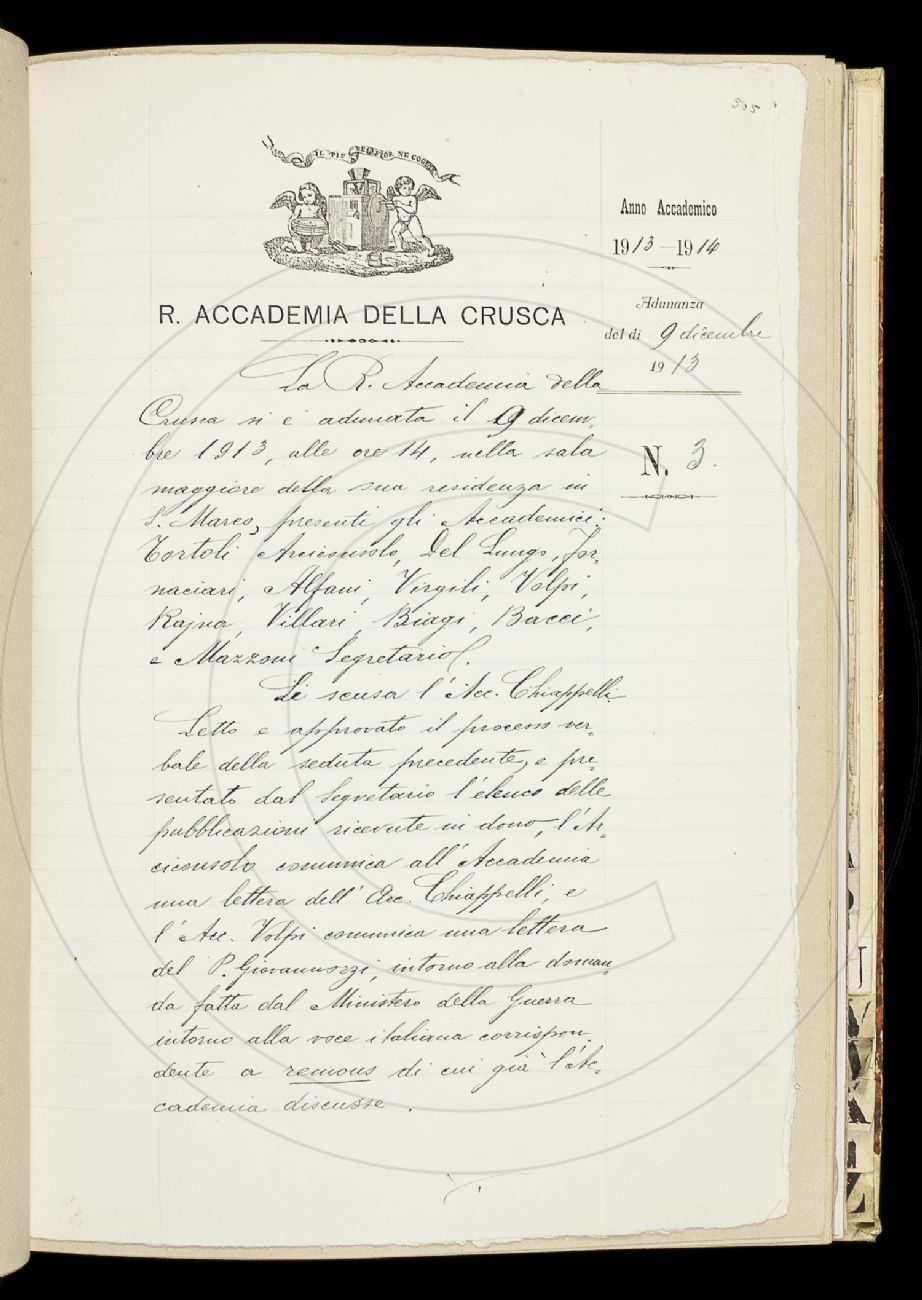 305
IL PIÙ BEL FIOR NE COGLIE
Anno Accademico
1913-1914
R. ACCADEMIA DELLA CRUSCA
Adunanza
del dì 9 dicembre
1913
N. 3.
La R. Accademia della
Crusca si è adunata il 9 dicem-
bre 1913, alle ore 14, nella sala
maggiore della sua residenza in
S. Marco, presenti gli Accademici:
Tortoli Arciconsolo, Del Lungo, For-
naciari, Alfani, Virgili, Volpi,
Rajna, Villari, Biagi, Bacci,
e Mazzoni Segretario.
Si scusa l'Acc. Chiappelli.
Letto e approvato il processo ver-
bale della seduta precedente, e pre-
sentato dal Segretario l'elenco delle
pubblicazioni ricevute in dono, l'Ar-
ciconsolo comunica all'Accademia
una lettera dell'Acc. Chiappelli, e
l'Acc. Volpi comunica una lettera
del P. Giovannozzi, intorno alla doman-
da fatta dal Ministero della Guerra
intorno alla voce italiana corrispon-
dente a remous di cui già l'Ac-
cademia discusse.